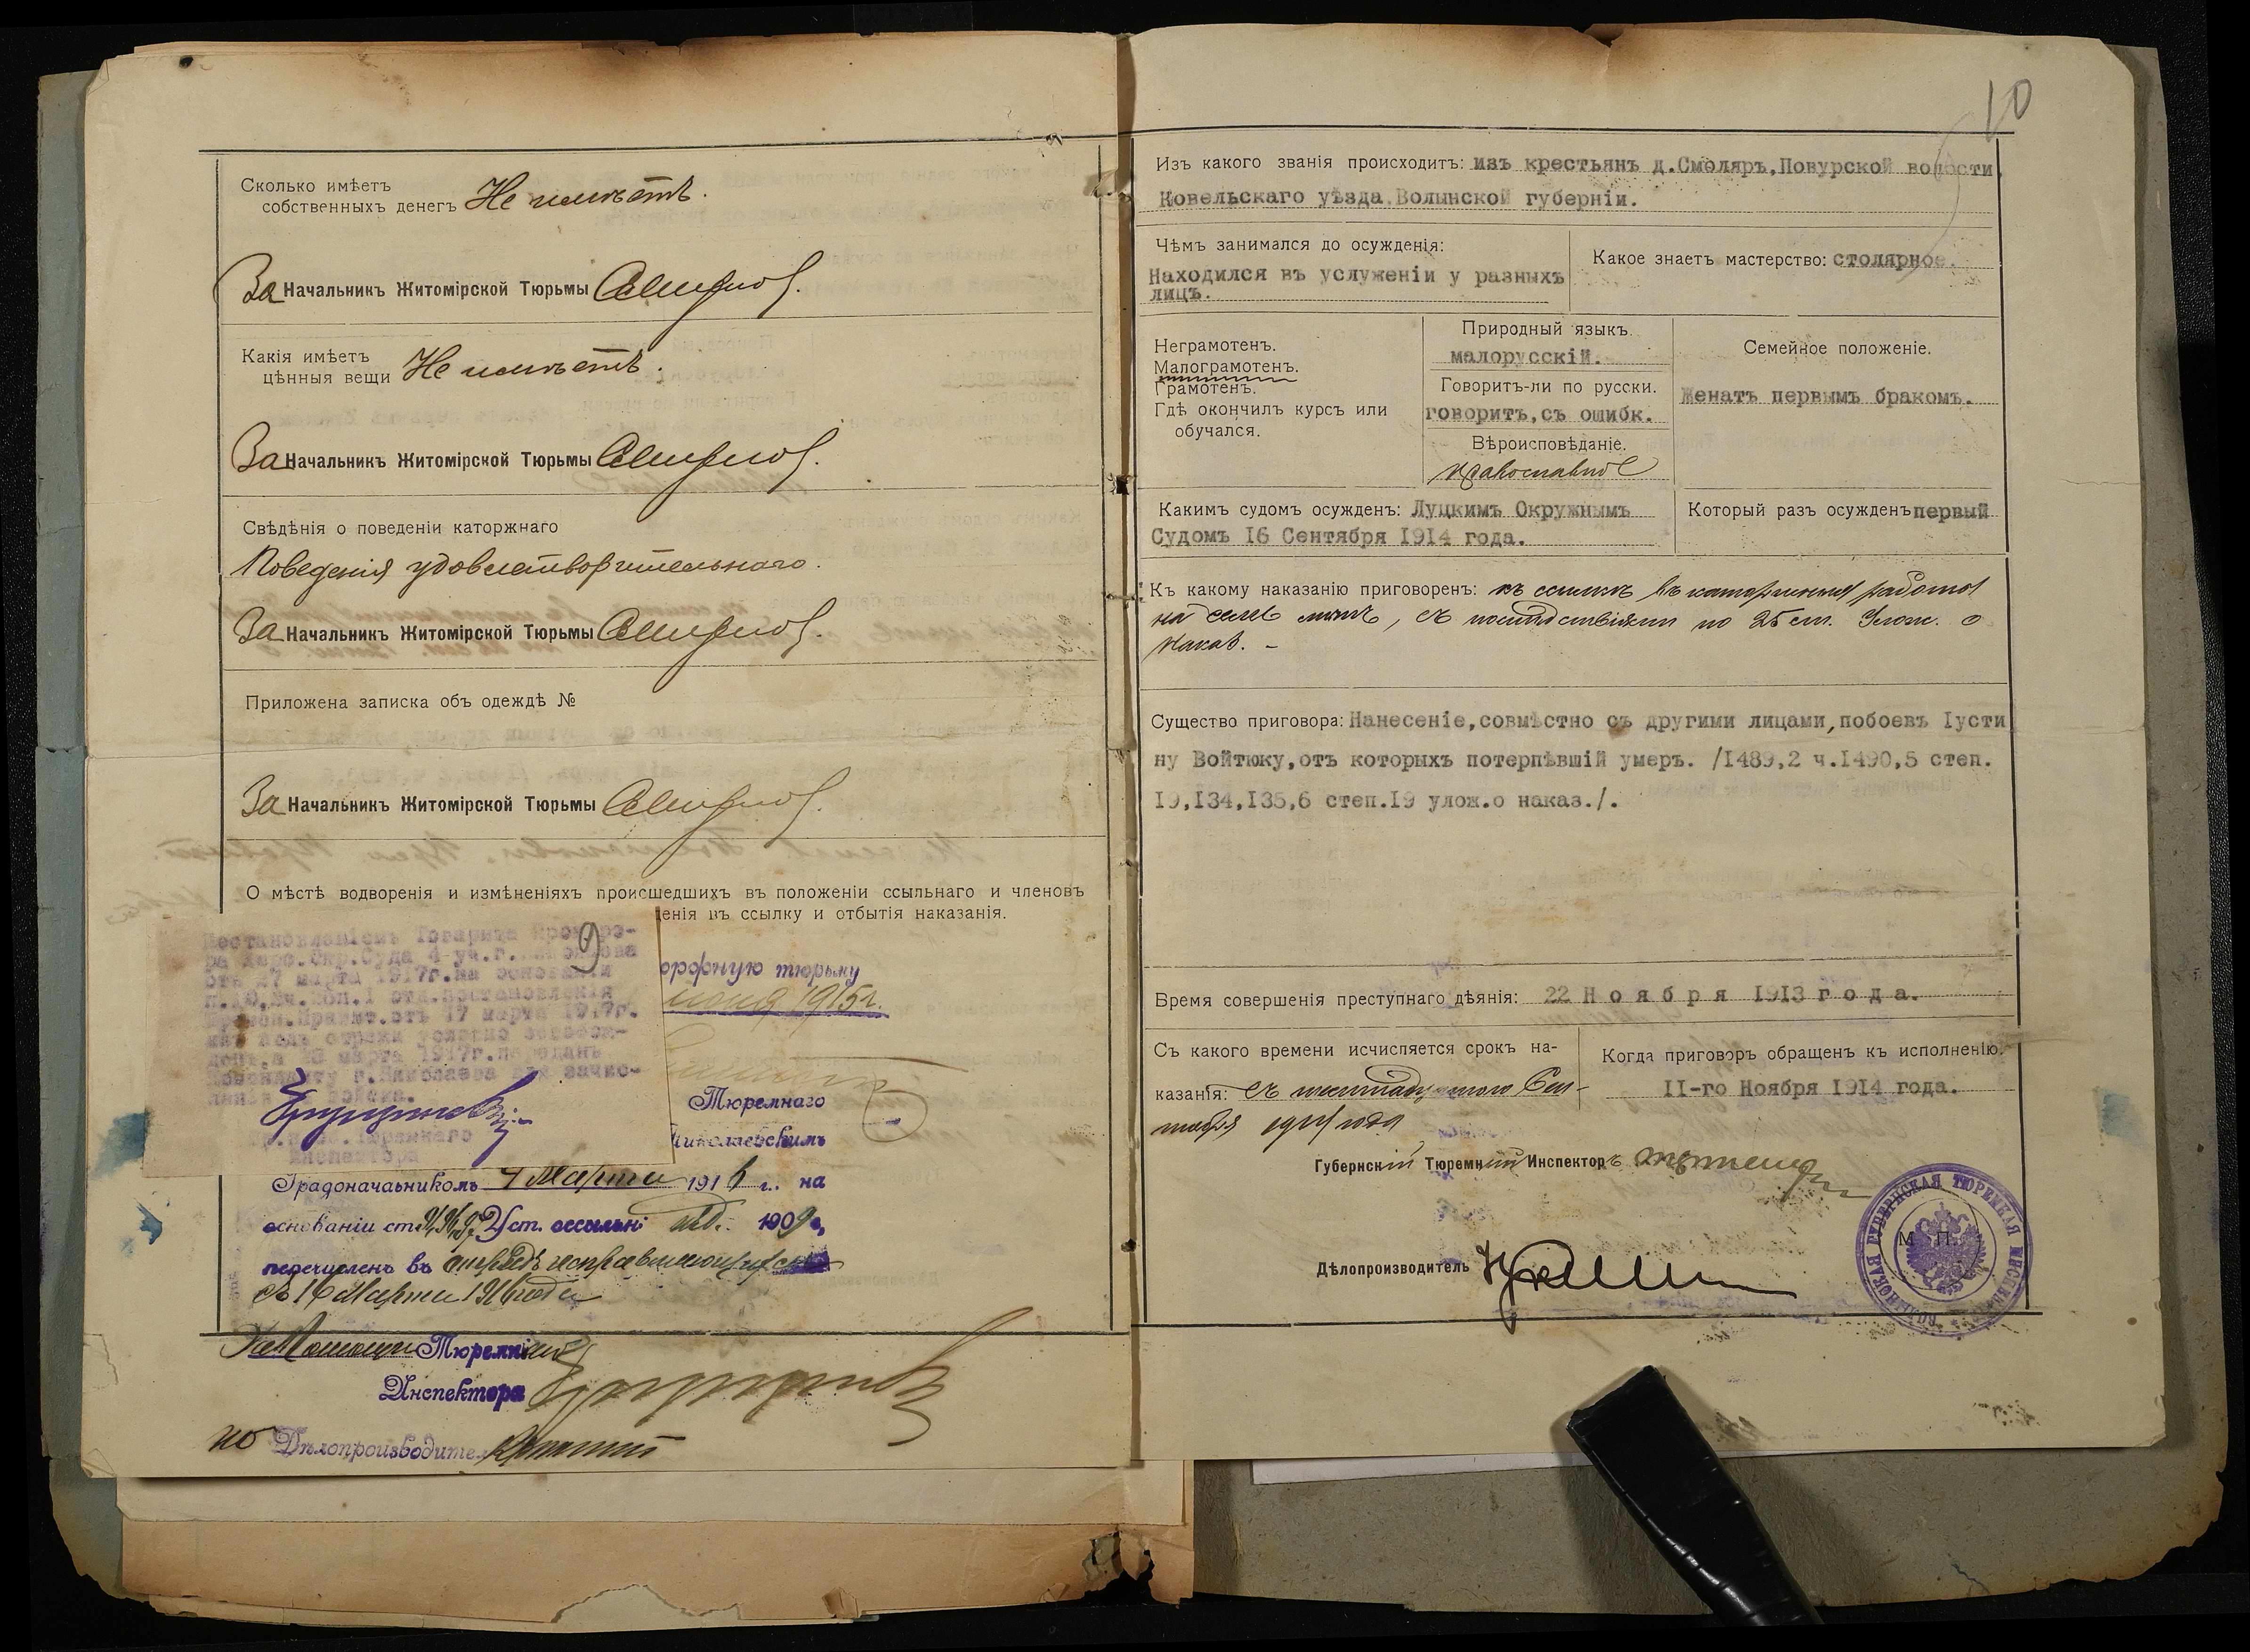 Сколько имѣетъ
собственныхъ денегъ Не имѣетъ.
За Начальникъ Житомірской Тюрьмы
Какія имѣетъ
цѣнныя вещи Не имѣетъ.
За Начальникъ Житомірской Тюрьмы
Свѣдѣнія о поведеніи каторжнаго
Поведенія удовлетворительнаго.
За Начальникъ Житомірской Тюрьмы
Приложена записка объ одеждѣ №
За Начальникъ Житомірской Тюрьмы
О мѣстѣ водворенія и измѣненіяхъ происшедшихъ въ положеніи ссыльнаго и членовъ
денія въ ссылку и отбытія наказанія.
9
Постановленіемъ Товарища Прокуро-
ра Херс.Окр.Суда 4 уч.г.
отъ 27 марта 1917г.на основаніи
отд.постановленія
Времен.Правит.отъ 17 марта 1917г.
изъ подъ стражи условно освобож-
денъ и 28 марта 1917г.переданъ
Коменданту г.Николаева для зачис-
ленія въ войска.
Тюремнаго
Инспектора
орфную тюрьму
1915г.
Тюремнаго
Николаевскимъ
Градоначальникомъ 4 Марта 1916 г. на
основаніи ст. Уст. о ссыльн. изд. 1909 г.
перечисленъ въ отрядъ исправляющихся
съ 16 Марта 1916 года
Тюремнаго
Инспектора
но Дѣлопроизводите
10
Изъ какого званія происходитъ: изъ крестьянъ д.Смоляръ,Повурской волости,
Ковельскаго уѣзда,Волынской губерніи.
Чѣмъ занимался до осужденія:
Находился въ услуженіи у разныхъ
лицъ.
Какое знаетъ мастерство: столярное.
Неграмотенъ.
Малограмотенъ.
Грамотенъ.
Гдѣ окончилъ курсъ или
обучался.
Природный языкъ.
малорусскій.
Говоритъ-ли по русски.
говоритъ,съ ошибк.
Вѣроисповѣданіе.
православное
Семейное положеніе.
Женатъ первымъ бракомъ.
Какимъ судомъ осужденъ: Луцкимъ Окружнымъ
Судомъ 16 Сентября 1914 года.
Который разъ осужденъ первый
Къ какому наказанію приговоренъ: къ ссылкѣ въ каторжныя работы
на семь лѣтъ, съ послѣдствіями по 25 ст. Улож. о
наказ. -
Существо приговора: Нанесеніе,совмѣстно съ другими лицами,побоевъ Іусти
ну Войтюку,отъ которыхъ потерпѣвшій умеръ. /1489,2 ч.1490,5 степ.
19,134,135,6 степ.19 улож.о наказ./.
Время совершенія преступнаго дѣянія: 22 Ноября 1913 года.
Съ какого времени исчисляется срокъ на-
казанія: съ шестнадцатаго Сен-
тября 1914 года
Когда приговоръ обращенъ къ исполненію.
11-го Ноября 1914 года.
Губернскій Тюремный Инспекторъ
Дѣлопроизводитель
М. П.
ВОЛЫНСКАЯ ГУБЕРНСКАЯ ТЮРЕМНАЯ ИНСПЕКЦІЯ